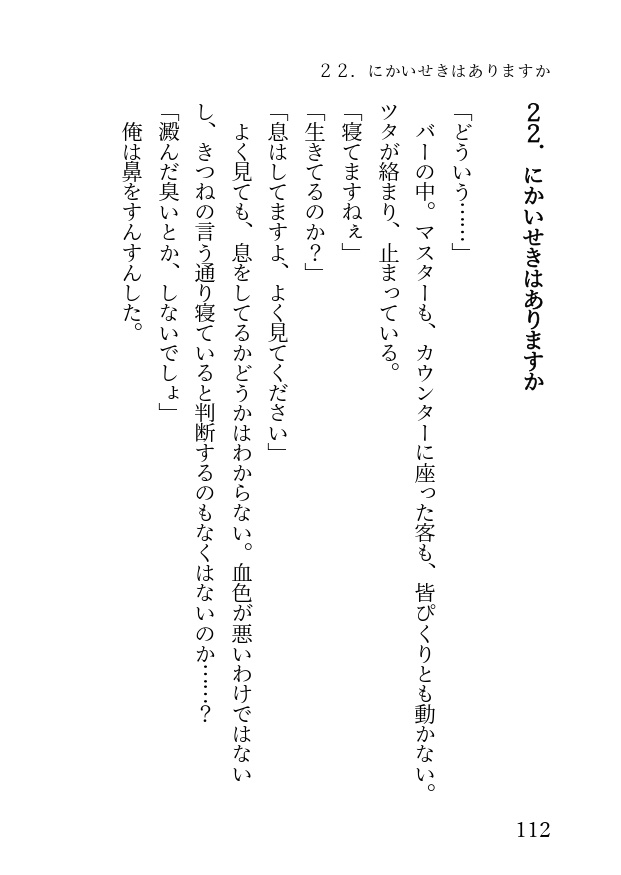 ２２．にかいせきはありますか
２２．にかいせきはありますか
「どういう……」
　バーの中。マスターも、カウンターに座った客も、皆ぴくりとも動かない。
ツタが絡まり、止まっている。
「寝てますねぇ」
「生きてるのか？」
「息はしてますよ、よく見てください」
　よく見ても、息をしてるかどうかはわからない。血色が悪いわけではない
し、きつねの言う通り寝ていると判断するのもなくはないのか……？
「澱んだ臭いとか、しないでしょ」
　俺は鼻をすんすんした。
112